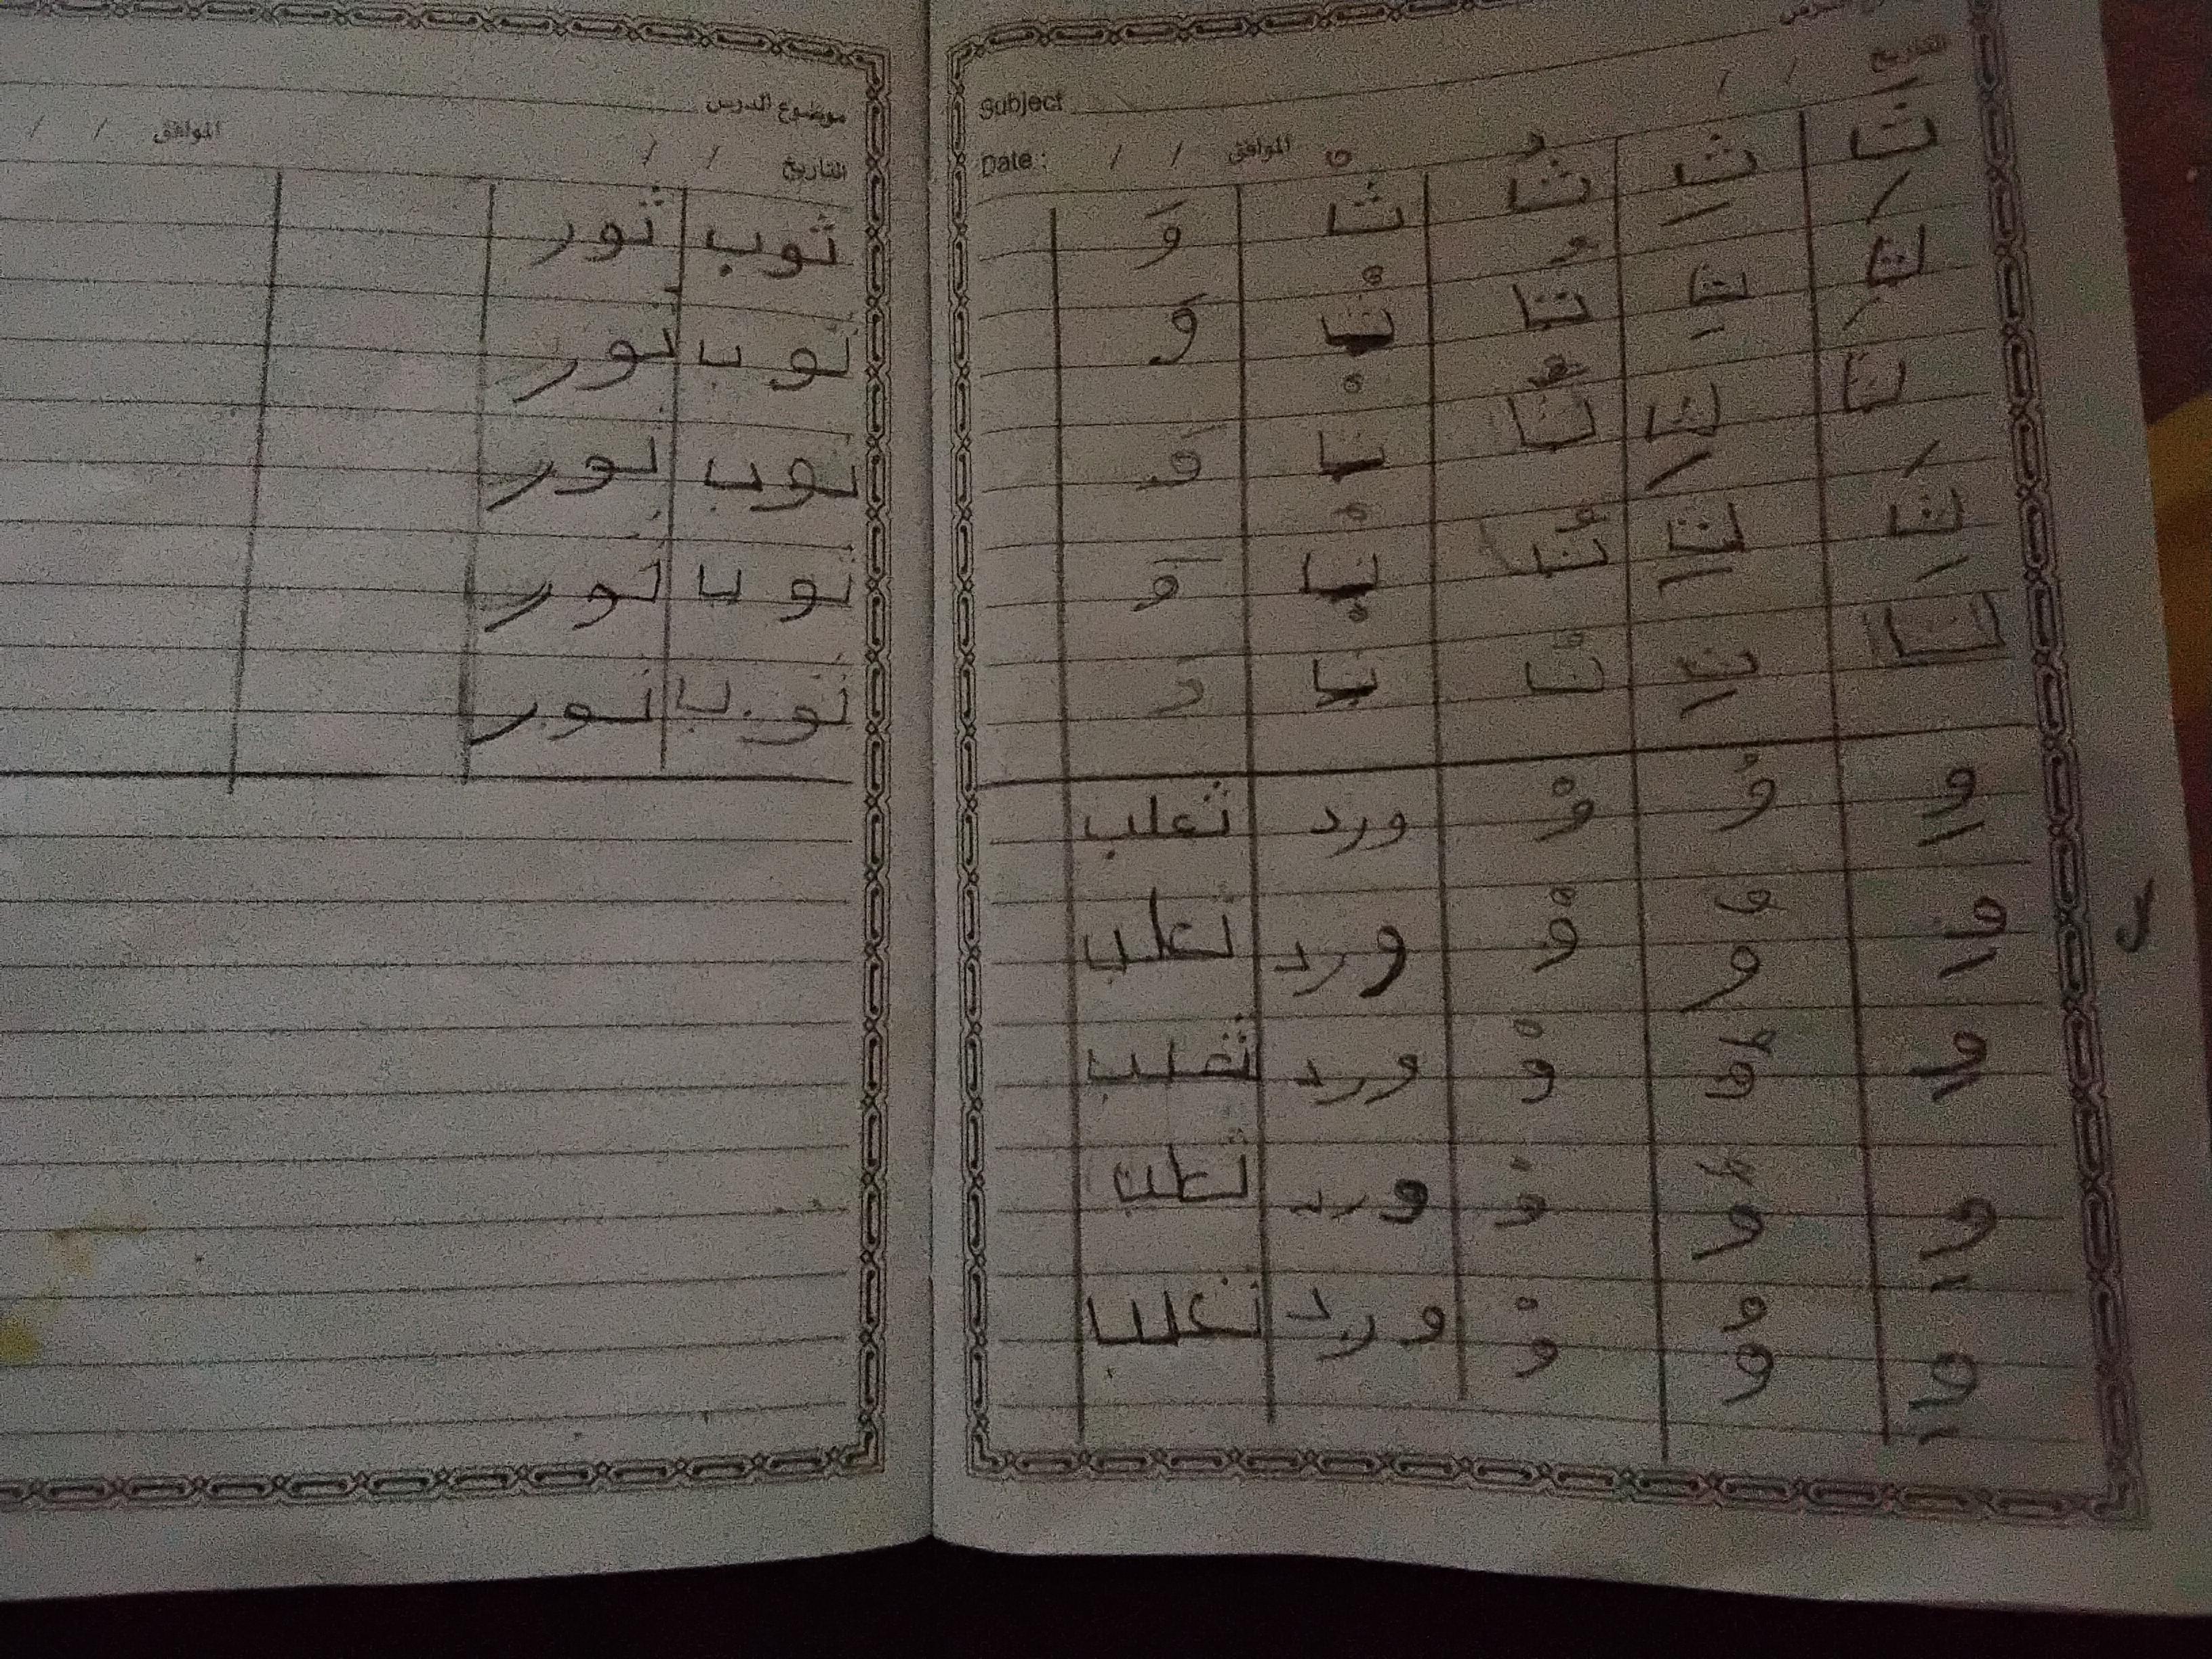 التاريخ / /
Subject
Date : / / الموافق
ثَ ثِ ثُ ثْ وَ
ثَ ثِ ثُ ثْ وَ
ثَ ثِ ثُ ثْ وَ
ثَ ثِ ثُ ثْ وَ
ثَ ثِ ثُ ثْ
وِ وُ وْ ورد ثعلب
وِ وُ وْ ورد ثعلب
وِ وُ وْ ورد ثعلب
وِ وُ وْ ورد
وِ وُ وْ ورد
موضوع الدرس
التاريخ / / الموافق / /
ثوب ثور
ثوب ثور
ثوب ثور
ثوب ثور
ثوب ثور